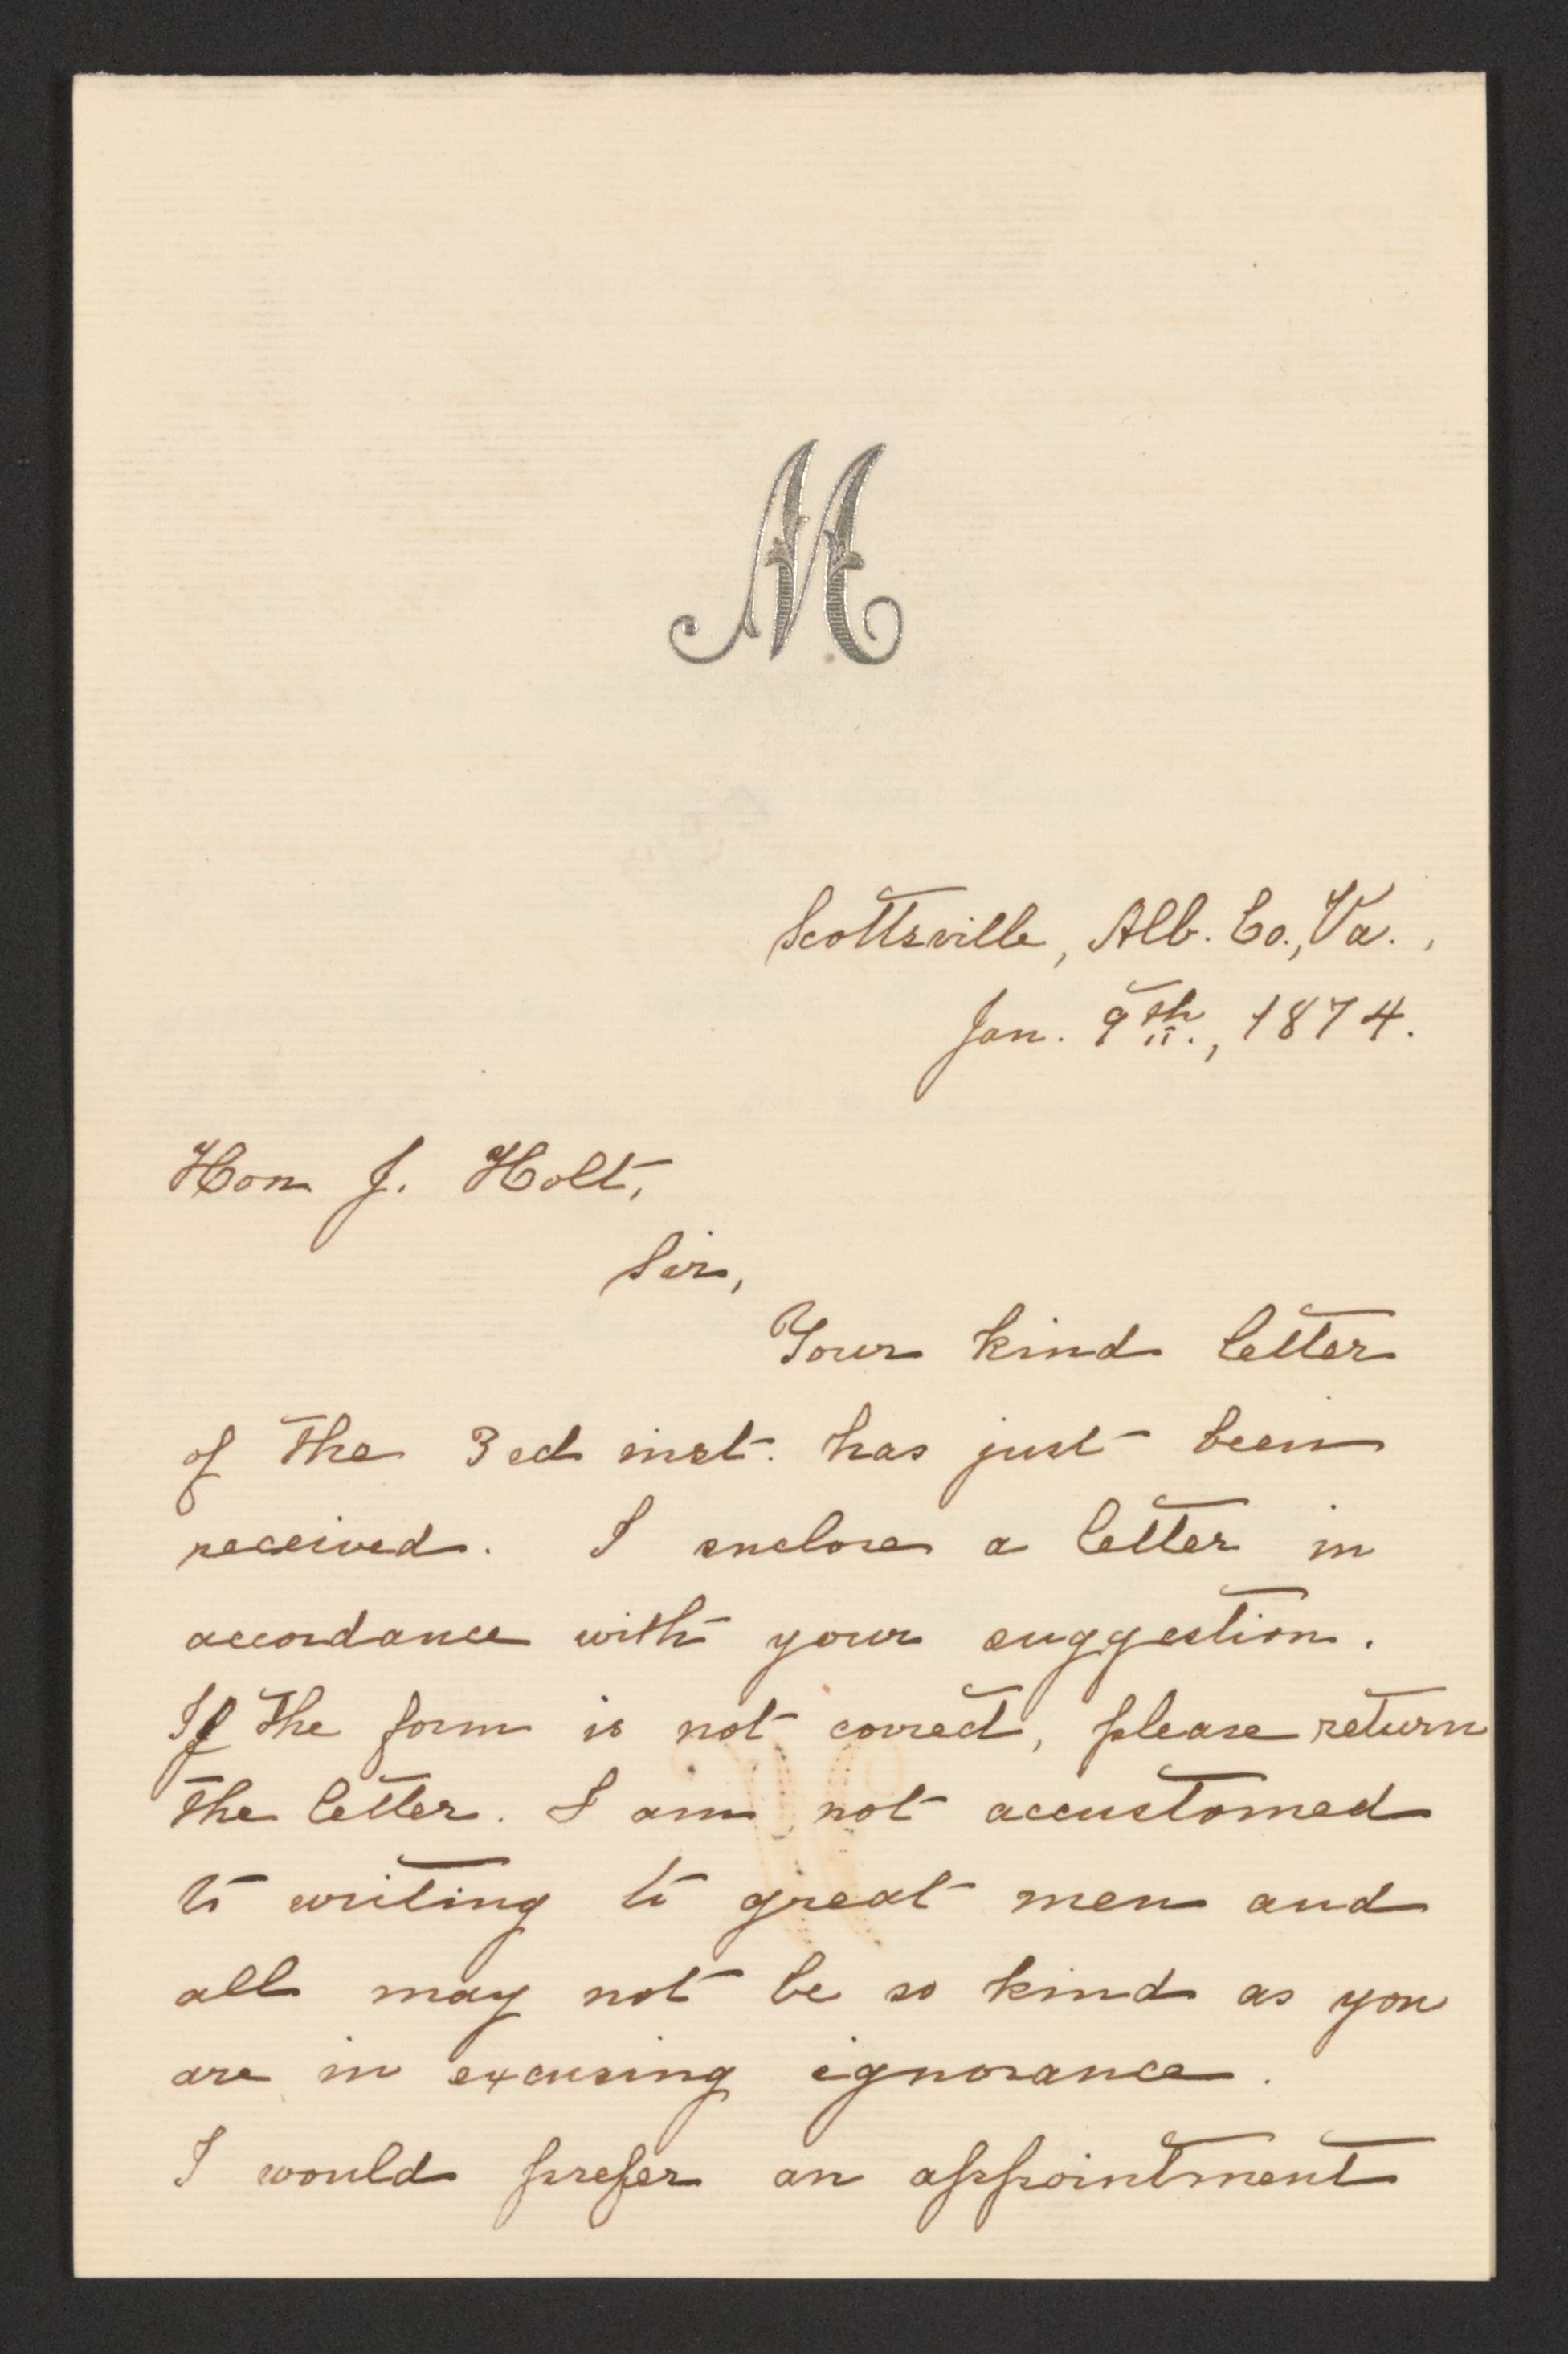 M
Scottsville, Alb. Co., Va.,
Jan. 9th., 1874.
Hon J. Holt,
Sir,
Your kind letter
of the 3ed inst. has just been
received. I enclose a letter in
accordance with your suggestion.
If the form is not correct, please return
the letter. I am not accustomed
to writing to great men and
all may not be so kind as you
are in excusing ignorance.
I would prefer an appointment